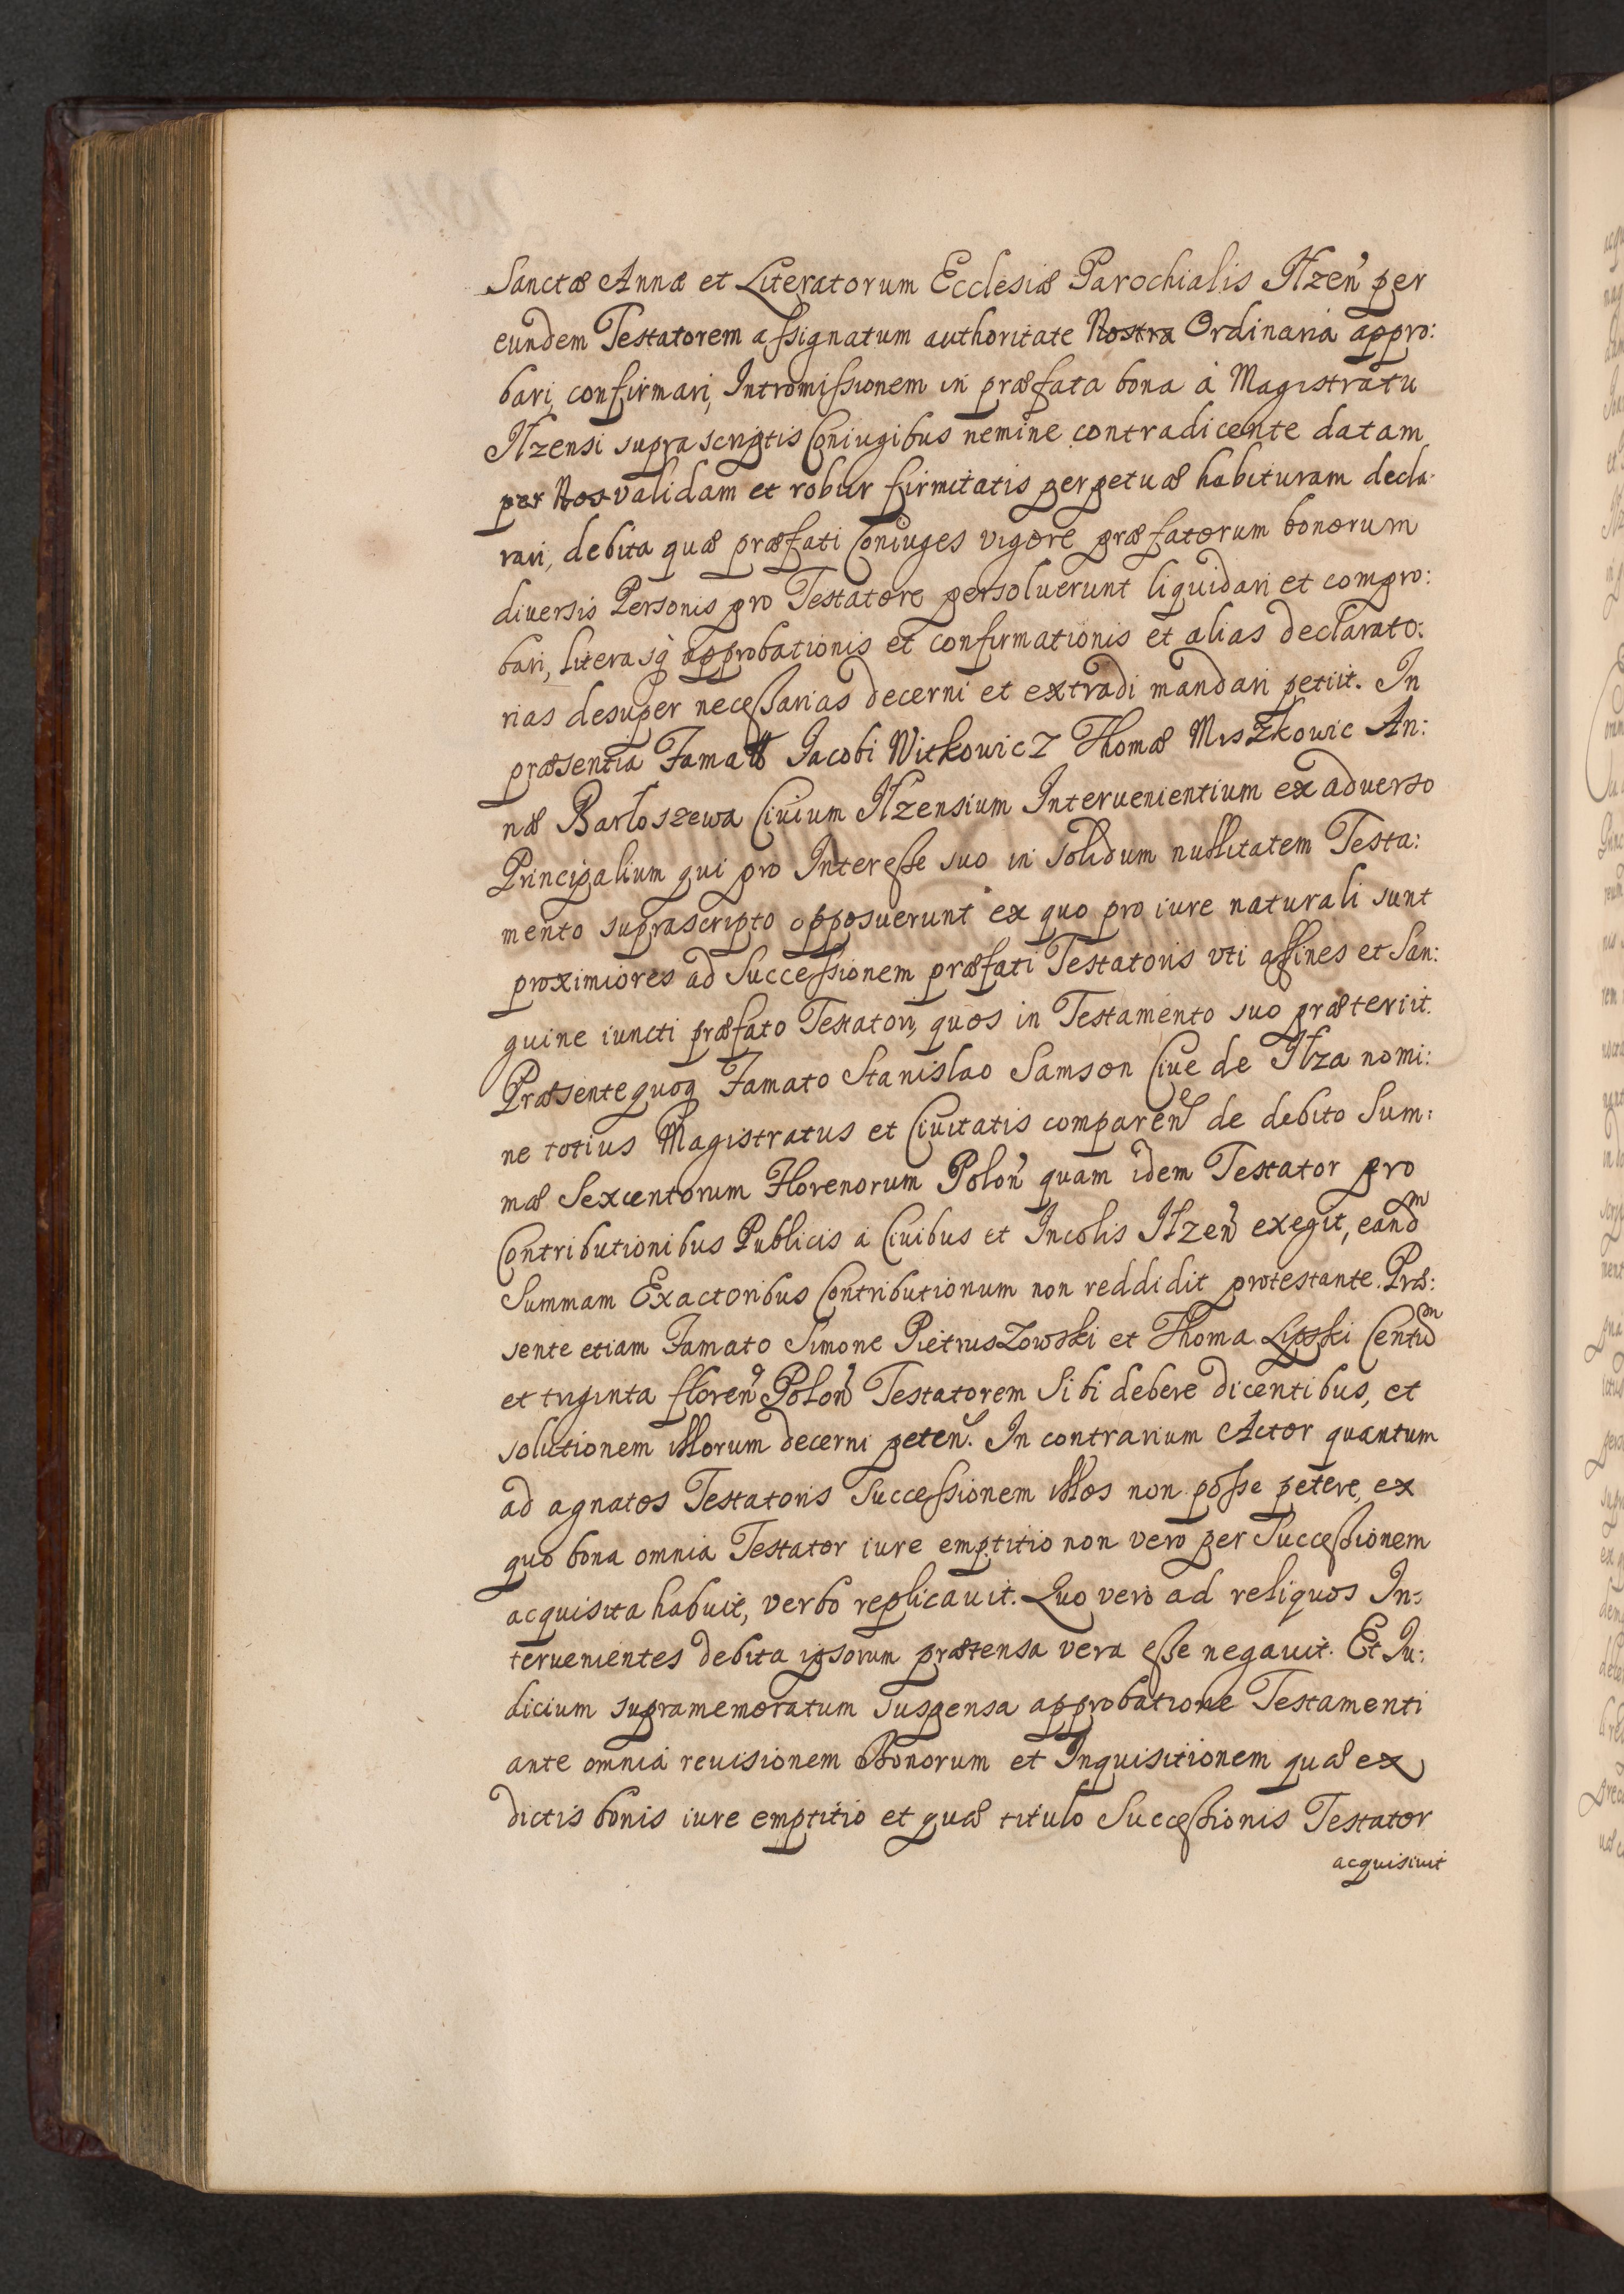 Sanctæ Annæ et Literatorum Ecclesiæ Parochialis Ilzen̄ per
eundem Testatorem assignatum authoritate Nostra Ordinaria appro:
bari, confirmari, Intromissionem in præfata bona à Magistratu
Ilzensi suprascriptis Coniugibus nemine contradicente datam
per Nos validam et robur firmitatis perpetuæ habituram decla:
rari, debita quæ præfati Coniuges vigore præfatorum bonorum
diversis Personis pro Testatore persoluerunt liquidari et compro:
bari, literasq̀ approbationis et confirmationis et alias declarato:
rias desuper necessarias decerni et extradi mandari petiit. In
præsentia Jacobi Witkowicz Thomæ Miszkowic An:
næ Bartoszewa Civium Ilzensium Interuenientium ex adverso
Principalium qui pro Interesse suo in solidum nullitatem Testa:
mento suprascripto opposuerunt ex quo pro iure naturali sunt
proximiores ad Successionem præfati Testatoris vti affines et San:
guine iuncti præfato Testatori, quos in Testamento suo præteriit.
Præsente quoq Famato Stanislao Samson Ciue de Ilza nomi:
ne totius Magistratus et Ciuitatis comparen̄ de debito Sum:
mæ Sexcentorum Florenorum Polon̄ quam idem Testator pro
Contributionibus Publicis a Ciuibus et Incolis Ilzen̄ exegit, eandᵐ
Summam Exactoribus Contributionum non reddidit protestante. Præ:
sente etiam Famato Simone Pietruszowski et Thoma Lipski Centuᵐ
et triginta floren̄ Polon̄ Testatorem Sibi debere dicentibus, et
solutionem illorum decerni peten̄. In contrarium Actor quantum
ad agnatos Testatoris Successionem illos non posse petere, ex
quo bona omnia Testator iure emptitio non vero per Successionem
acquisita habuit, verbo replicauit. Quo vero ad reliquos In:
teruenientes debita ipsorum prætensa vera esse negauit. Et Iu:
dicium supramemoratum suspensa approbatione Testamenti
ante omnia reuisionem Bonorum et Inquisitionem quæ ex
dictis bonis iure emptitio et quæ titulo Successionis Testator
acquisiuit